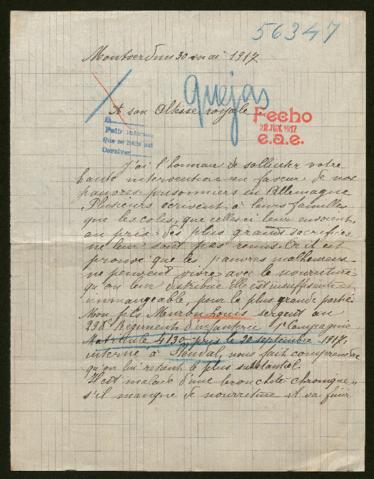 56347
Montverdun 30 mai 1917
quejas
A son Altesse royale
Fecho
28 JUN. 1917
e.a.e.
Pedir informes
que se haga asi
Contestar
J'ai l'honneur de solliciter votre
haute intervention en faveur de nos
pauvres prisonniers en Allemagne
Plusieurs écrivent à leurs familles
que les colis, que celles ci leur envoient
au prix des plus grands sacrifices
ne leur sont pas remis. Or il est
prouvé que les pauvres malheureux
ne peuvent vivre avec la nourriture
qu'on leur distribue Elle est insuffisante et
immangeable, pour la plus grande partie
Mon fils Louis sergent au
298 Regiment d'infanterie Compagnie
Matricule 4130 pris le 20 septembre
interné à Stendal, nous fait comprendre
qu'on lui retient le plus substantiel.
Il est malade d'une bronchite chronique
s'il manque de nourriture et va finir